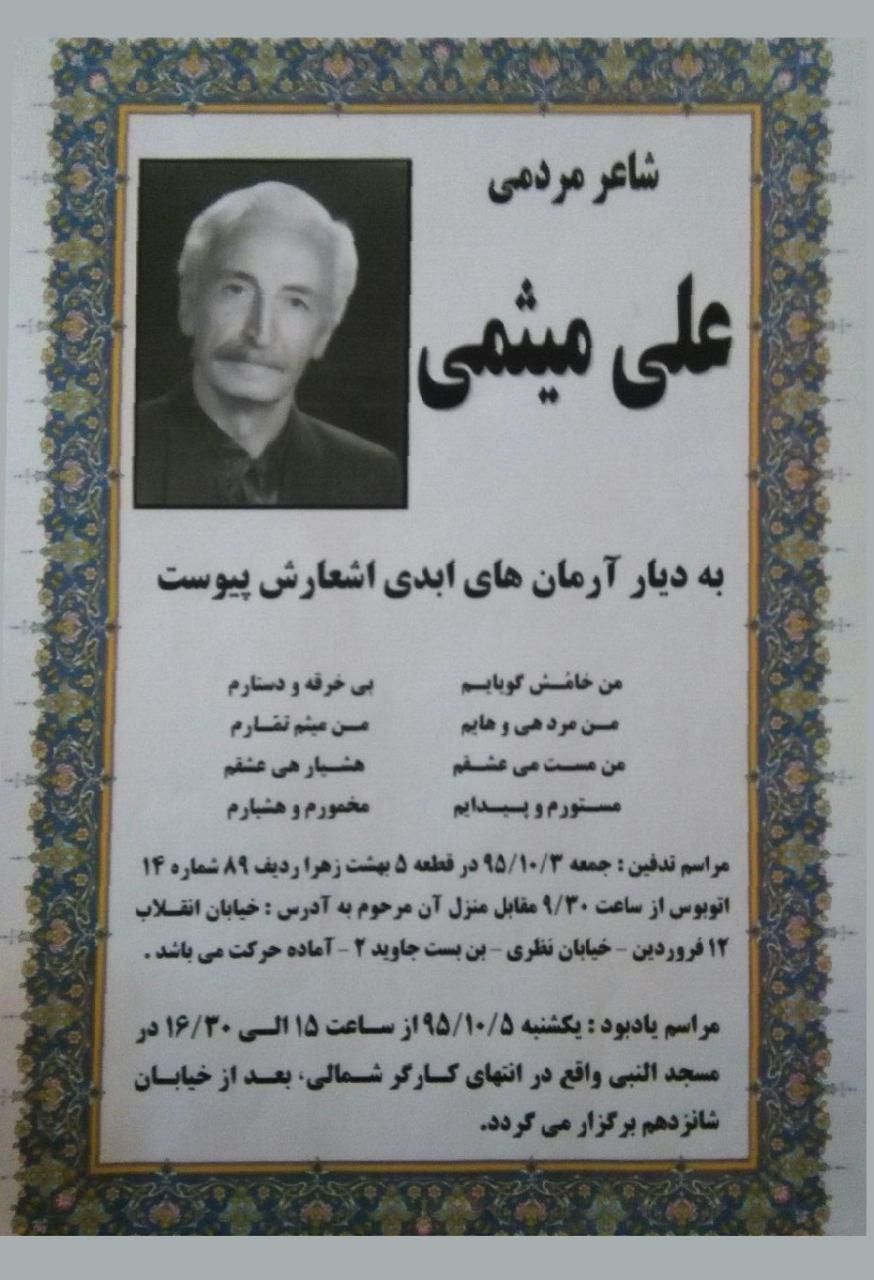 شاعر مردمی
علی میثمی
به دیار آرمان های ابدی اشعارش پیوست
من خامُش گویایم بی خرقه و دستارم
من مرد هی و هایم من میثم تمّارم
من مست می عشقم هشیار هی عشقم
مستورم و پیدایم مخمورم و هشیارم
مراسم تدفین : جمعه ۹۵/۱۰/۳ در قطعه ۵ بهشت زهرا ردیف ۸۹ شماره ۱۴
اتوبوس از ساعت ۹/۳۰ مقابل منزل آن مرحوم به آدرس : خیابان انقلاب
۱۲ فروردین – خیابان نظری – بن بست جاوید ۲ – آماده حرکت می باشد .
مراسم یادبود : یکشنبه ۹۵/۱۰/۵ از ساعت ۱۵ الی ۱۶/۳۰ در
مسجد النبی واقع در انتهای کارگر شمالی، بعد از خیابان
شانزدهم برگزار می گردد.